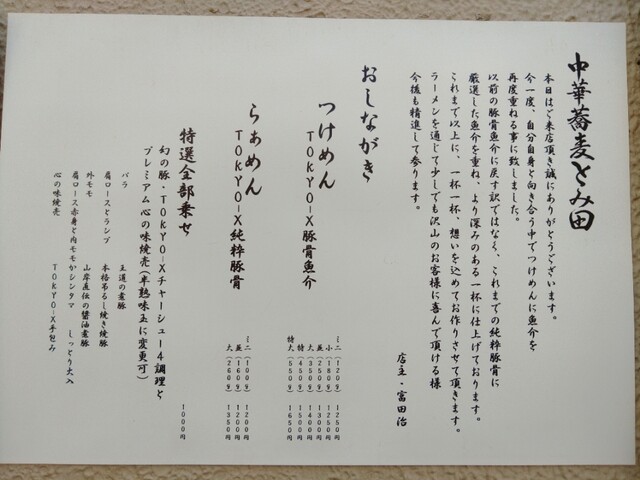 中華蕎麦とみ田
本日はご来店頂き誠にありがとうございます。
今一度、自分自身と向き合う中でつけめんに魚介を
再度重ねる事に致しました。
以前の豚骨魚介に戻す訳ではなく、これまでの純粋豚骨に
厳選した魚介を重ね、より深みのある一杯に仕上げております。
これまで以上に、一杯一杯、想いを込めてお作りさせて頂きます。
ラーメンを通じて少しでも沢山のお客様に喜んで頂ける様
今後も精進して参ります。
店主・富田治
おしながき
つけめん
TOKYO-X豚骨魚介
ミニ(120g) 1250円
小(180g) 1250円
並(250g) 1300円
大(350g) 1400円
特(450g) 1500円
特大(550g) 1650円
らぁめん
TOKYO-X純粋豚骨
ミニ(100g) 1200円
並(160g) 1200円
大(260g) 1350円
特選全部乗せ
幻の豚・TOKYO-Xチャーシュー4調理と
プレミアム心の味焼売(半熟味玉に変更可)
1000円
バラ 王道の煮豚
肩ロースとランプ 本格吊るし焼き焼豚
外モモ 山岸直伝の醤油煮豚
肩ロース赤身と内モモかシンタマ しっとり大人
心の味焼売 TOKYO-X手包み